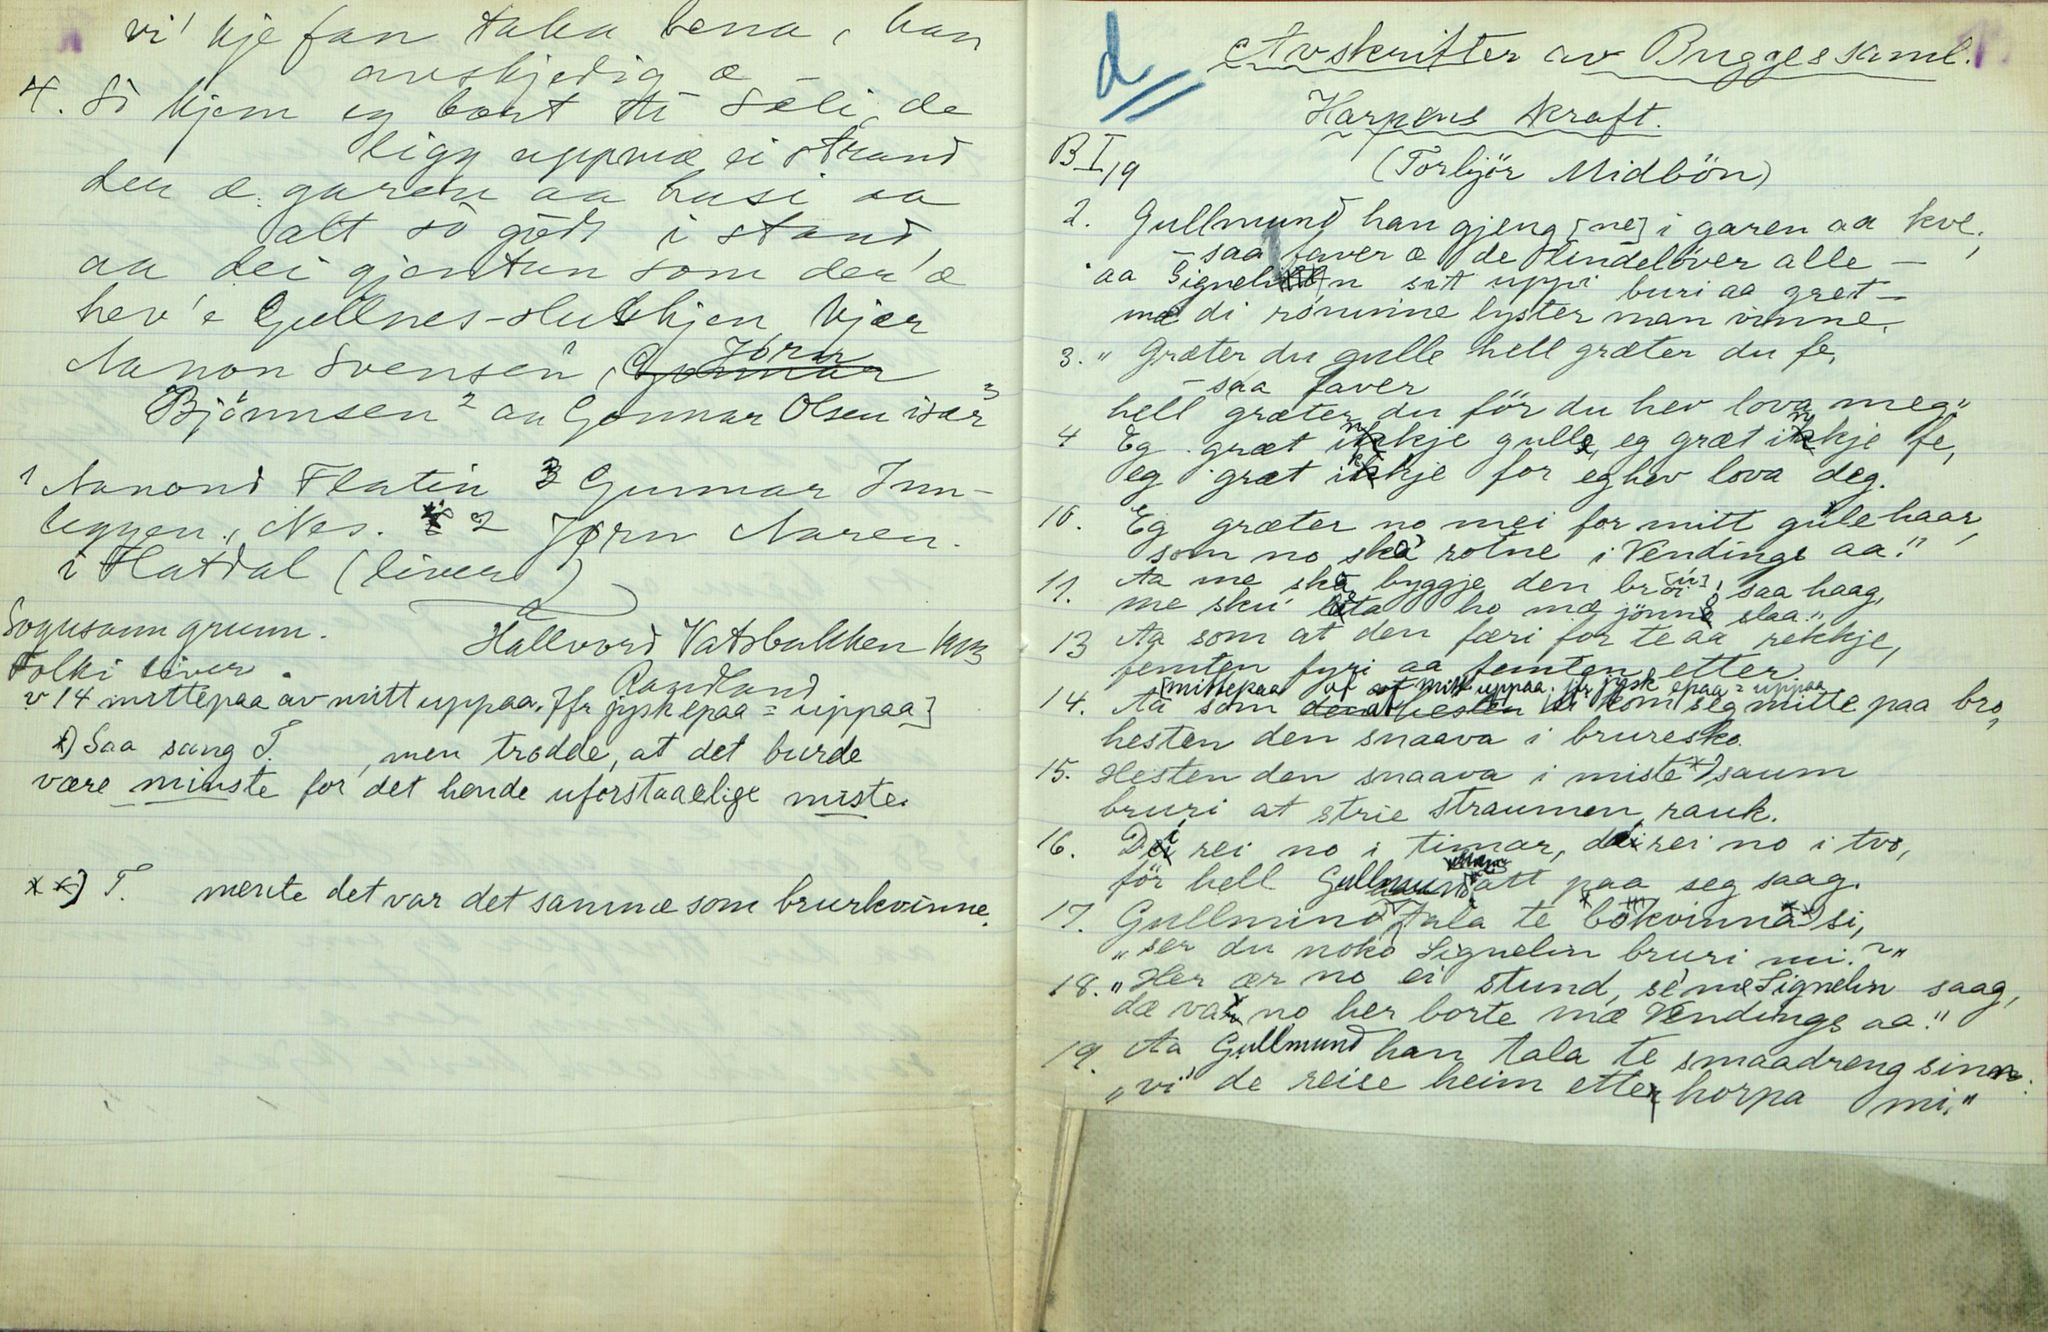 vi' kje fan taka bena, han
avskjedig æ –
4. Så kjem eg bort til Seli, de
ligg uppmæ ei strand
den æ garen aa husi aa
alt så godt i stand,
aa dei gjentun som der' æ
hev' e Gullnes-slukkjen kjær
Nanon Svensen¹, Gonnar Jörn
Bjönnsen² aa Gonnar Olsen især³
1 Nanond Flatin 3 Gunnar Inn-
leggen, Nes. 2 Jørn Naren
i Flatdal (liver)
Sogusann grunn.
Hallvord Vatsbakken 1913
Folki liver.
Sandland
v 14 mittepaa av mitt uppaa. Jfr jysk epaa = uppaa]
*) Saa sang T. , men trodde, at det burde
være minste for det hende uforstaaelige miste.
**) T. mente det var det samme som brurkvinne.
d
Avskrifter av Bugges saml.
Harpens kraft.
B I, 19
(Torbjör Midbön)
2. Gullmund han gjeng [ne] i garen aa kve,
– saa faver æ de lindelöver alle –
aa Signelin sit uppi buri aa græt –
mæ di roninne lyster man vinne.
3. "Græter du gulle hell græter du fe,
– saa faver
hell græter du för du hev lova meg"
4 Eg græt inkje gulle, eg græt inkje fe,
eg græt ikkje for eg hev lova deg.
10. Eg græter no mei for mitt gule haar,
som no ska rotne i Vendings aa."
11. Aa me ska byggje den bröi [ú], saa haag,
me sku lata ho mæ jönne slaa."
13 Aa som at den færi for te aa rekkje,
femten fyri aa femten etter
[mittepaa af mitt uppaa. jfr jysk epaa = uppaa
14. Aa som den at hesten di kom seg mitte paa bro,
hesten den snaava i bruresko.
15. Hesten den snaava i miste *) saum
bruri at strie straumen rauk.
16. Dei rei no i timar, dei rei no i tvo,
för hell Gullmund att paa seg saag.
17. Gullmund tala te bökvinna **) si,
"ser du noko Signelin bruri mi?"
18. "Her ær no ei stund, se me Signelin saag,
dæ var no her borte mæ Vendings aa."
19. Aa Gullmund han tala te smaadreng sinn:
"vi' de reise heim etter horpa mi."